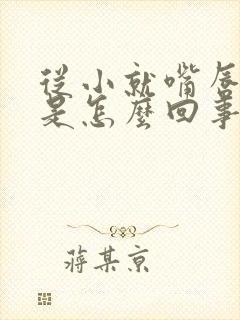 從小就嘴唇
是怎麼回事
蔣某京